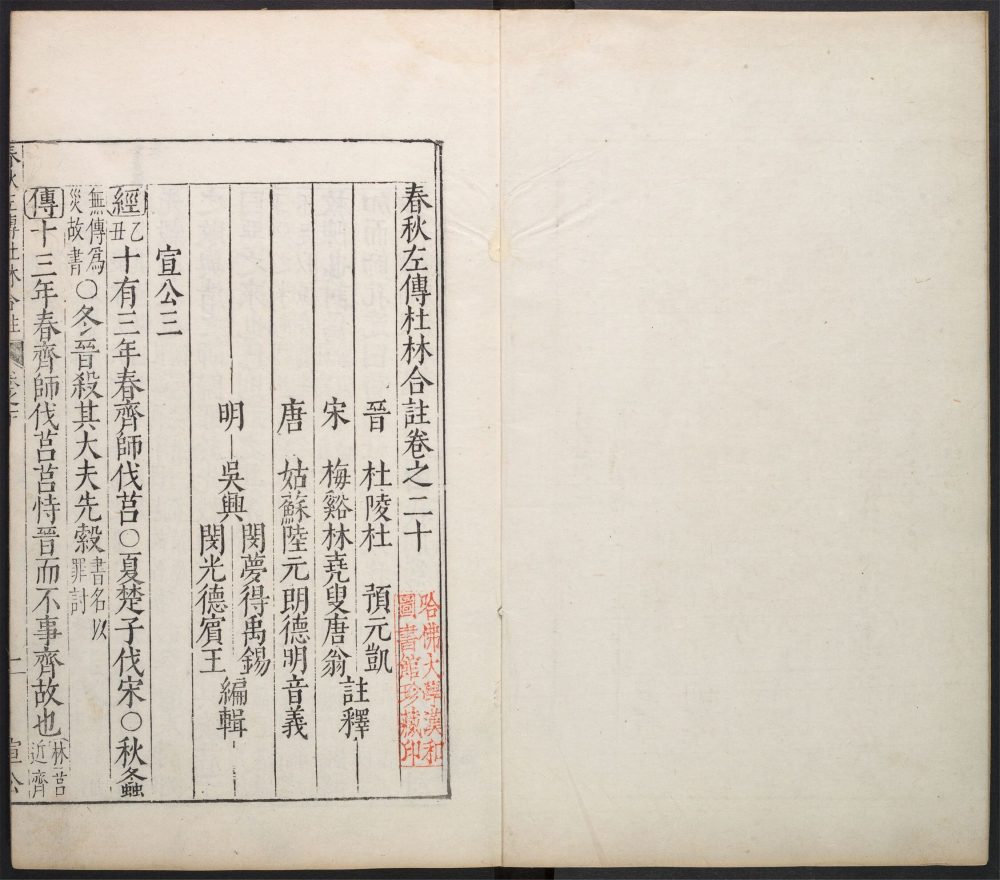 春秋左傳杜林合註卷之二十
晉　杜陵杜　預元凱
宋　梅谿林堯叟唐翁
註釋
唐　姑蘇陸元朗德明音義
明　吳興
閔夢得禹錫
閔光德賓王
編輯
宣公三
經乙丑十有三年春齊師伐莒○夏楚子伐宋○秋螽
無傳爲災故書○冬晉殺其大夫先縠書名以罪討
傳十三年春齊師伐莒莒恃晉而不事齊故也林莒近齊
春秋左傳杜林合註
宣公
哈佛大學漢和
圖書館珍藏印